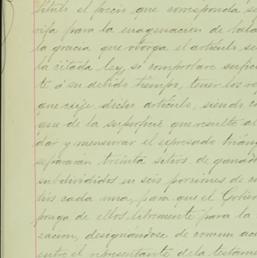 título el precio que corresponda se
rifa para la enagenacion de baldí
la gracia que otorga el artículo se
la citada ley, si comprobare sufici
te á su debido tiempo, tener los re
que exije dicho artículo, siendo en
que de la superficie que resulte al
dar y mensurar el espresado trián
separarán treinta sitios de ganado
subdivididos en seis porciones de c
tios cada una, para que el Gobier
ponga de ellos libremente para la
zacion, designándose de comun ac
entre el representante de la testamen